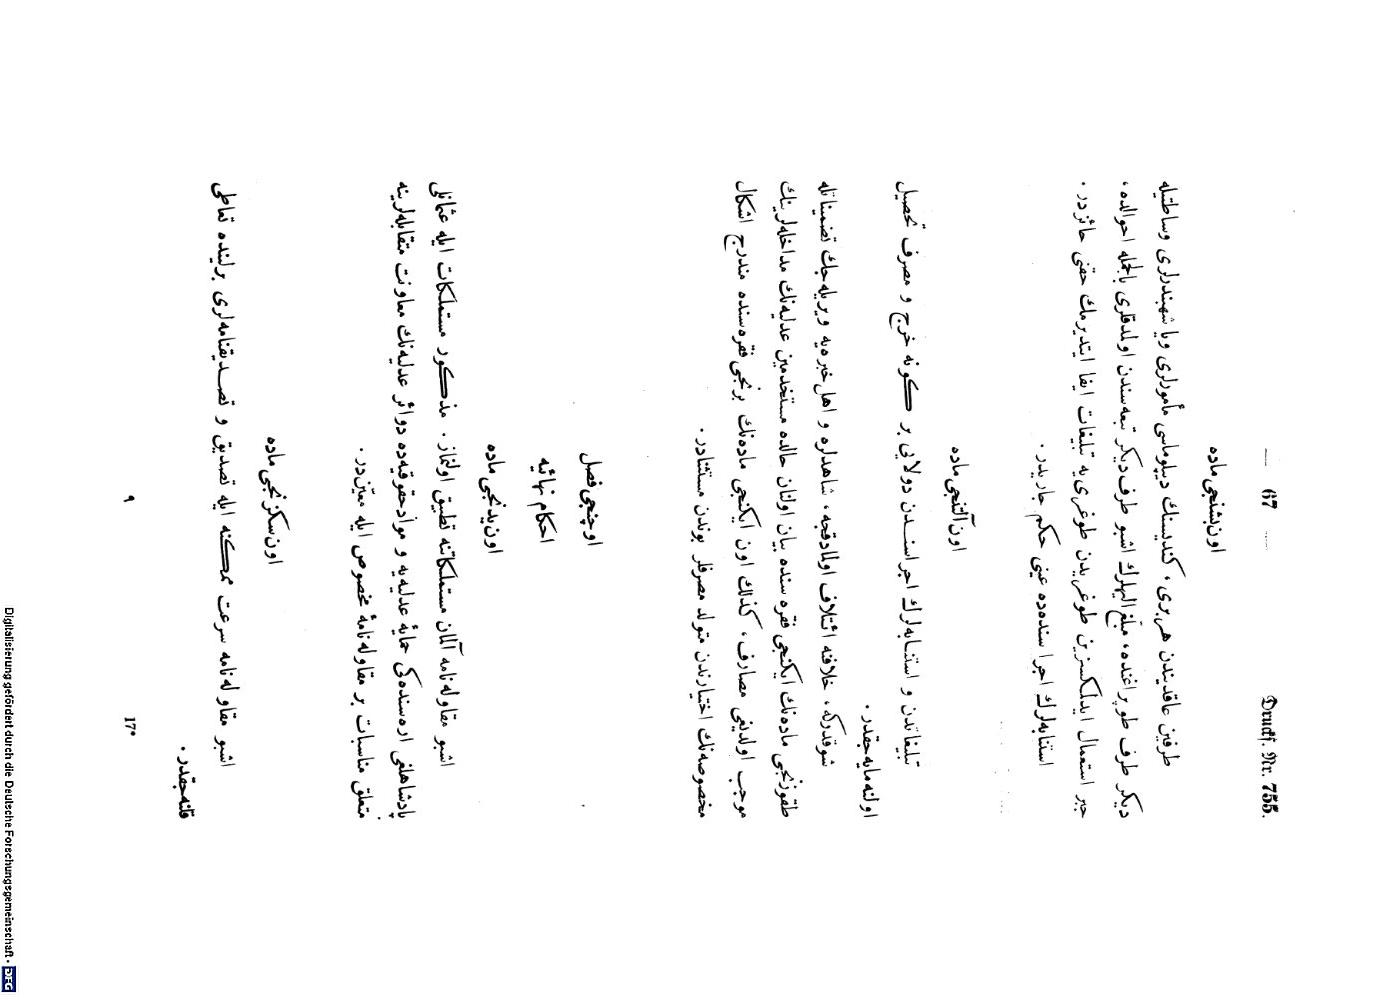 — 67 —
Druckf. Nr. 755.
اون بشنجی ماده
طرفین عاقدیندن هر بری، کندیسنك دیپلوماسی مأمورلری ویا شهبندرلری وساطتیله
دیکر طرف طوپراغنده، مبلغ الیهلرك اشبو طرف دیکر تبعه سندن اولدقلری بالجمله احوالده،
جبر استعمال ایدلمکسزین طوغریدن طوغری یه تبلیغات ایفا ایتدیرمك حقنی حائزدر.
استنابه لرك اجرا سنده ده عینی حکم جاریدر.
اون آلتنجی ماده
تبلیغاتدن و استنابه لرك اجراسندن دولایی بر کونه خرج و مصرف تحصیل
اولنه مایه جقدر.
شوقدرکه، خلافنه ائتلاف اولمادقجه، شاهدلره و اهل خبره یه ویریله جك تضمیناتله
طقوزنجی ماده نك ایکنجی فقره سنده بیان اولنان حالده مستخدمین عدلیه نك مداخله لرینك
موجب اولدیغی مصارف، کذلك اون ایکنجی ماده نك برنجی فقره سنده مندرج اشکال
مخصوصه نك اختیارندن متولد مصرفلر بوندن مستثنادر.
اوچنجی فصل
احکام نهائیه
اون یدنجی ماده
اشبو مقاوله نامه آلمان مستملکاتنه تطبیق اولنماز. مذکور مستملکات ایله عثمانلی
پادشاهلغی اره سنده کی حمایۀ عدلیه یه و مواد حقوقیه ده دوائر عدلیه نك معاونت متقابله لرینه
متعلق مناسبات بر مقاوله نامۀ مخصوص ایله معین در.
اون سکزنجی ماده
اشبو مقاوله نامه سرعت ممکنه ایله تصدیق و تصدیقنامه لری برلینده تعاطی
قلنه جقدر.
٩
17*
Digitalisierung gefördert durch die Deutsche Forschungsgemeinschaft - DFG